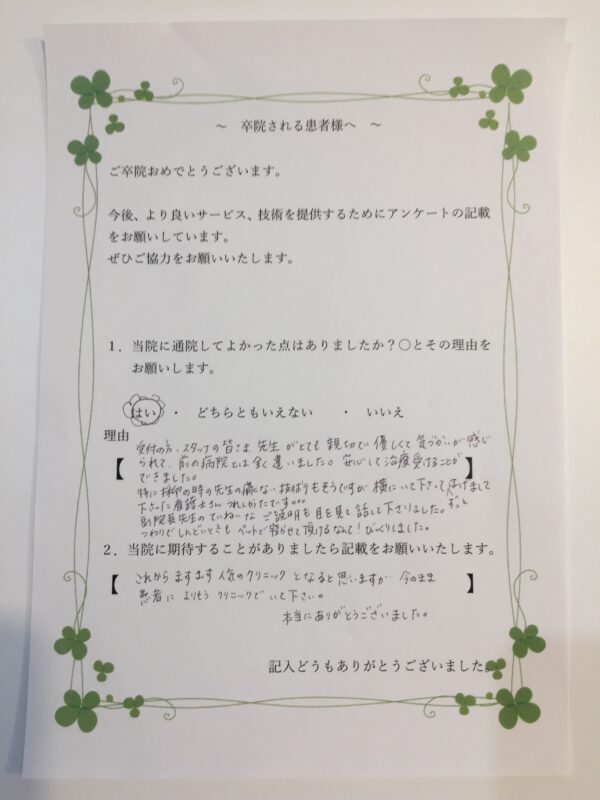 ～　卒院される患者様へ　～
ご卒院おめでとうございます。
今後、より良いサービス、技術を提供するためにアンケートの記載
をお願いしています。
ぜひご協力をお願いいたします。
1．当院に通院してよかった点はありましたか？○とその理由を
お願いします。
はい　・　どちらともいえない　・　いいえ
理由
【受付の方、スタッフの皆さま 先生がとても親切で優しくて気づかいが感じ
られて、前の病院とは全く違いました。安心して治療受けることが】
できました。
特に採卵の時の先生の痛くない技術もそうですが 横にいて下さって
下さった看護士さん うれしかったです
副院長先生のていねいな ご説明も目を見て話して下さりました。ずっと
つわりでしんどいときも ベットで寝かせて頂けるなんて！びっくりしました。
2．当院に期待することがありましたら記載をお願いいたします。
【これから ますます 人気のクリニックとなると思いますが 今のまま】
患者によりそう クリニックでいて下さい。
本当にありがとうございました。
記入どうもありがとうございました。